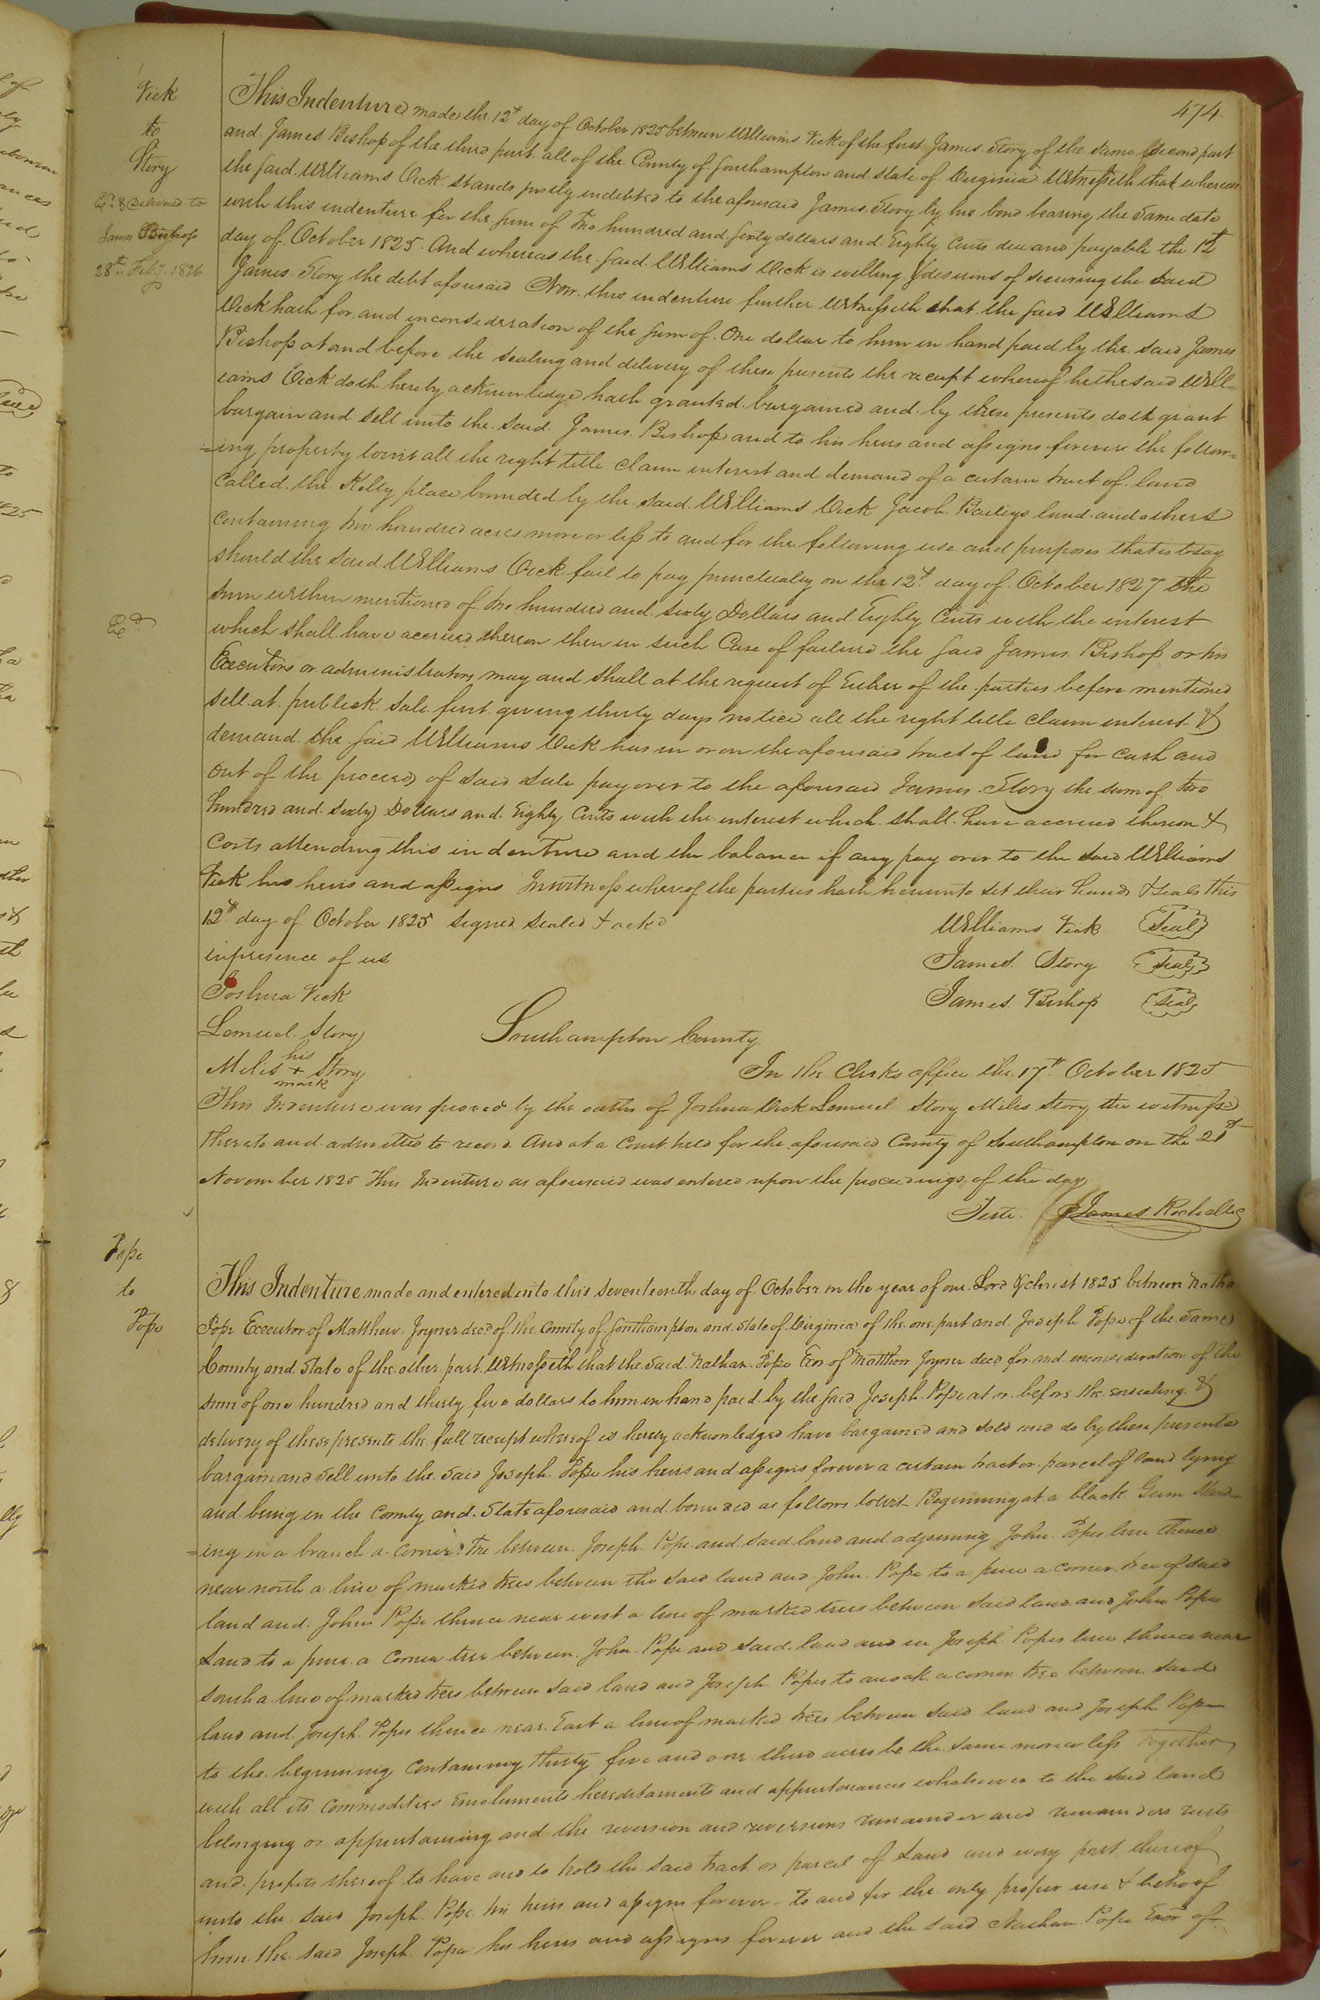 474
Vick
to
Story
Ex.d & Delivered to
James Bishop
28th Feby. 1826
This Indenture made the 12th day of October 1825 between Williams Vick of the first James Story of the same second part
and James Bishop of the third part all of the County of Southampton and State of Virginia Witnesseth that whereas
the said Williams Vick stands justly indebted to the aforesaid James Story by his bond bearing the same date
with this indenture for the sum of two hundred and sixty dollars and Eighty Cents due and payable the 12th
day of October 1825. And whereas the said Williams Vick is willing & desirous of securing the said
James Story the debt aforesaid Now this indenture further Witnesseth that the said Williams
Vick hath for and in consideration of the sum of One dollar to him in hand paid by the said James
Bishop at and before the sealing and delivery of these presents the receipt whereof he the said Will-
iams Vick doth hereby acknowledge hath granted bargained and by these presents doth grant
bargain and sell unto the said James Bishop and to his heirs and assigns forever the follow-
=ing property towit all the right title claim interest and demand of a certain tract of land
Called the Kelly place bounded by the said Williams Vick Jacob Baileys land and others
Containing two hundred acres more or less to and for the following use and purposes that is to say
should the said Williams Vick fail to pay punctualy on the 12th day of October 1827 the
sum within mentioned of two hundred and sixty Dollars and Eighty Cents with the interest
Ex.d
which shall have accrued thereon then in such Case of failure the said James Bishop or his
Executors or administrators may and shall at the request of Either of the parties before mentioned
sell at publick sale first giving thirty days notice all the right title claim interest &
demand the said Williams Vick has in or on the aforesaid tract of land for cash and
out of the proceeds of said sale pay over to the aforesaid James Story the sum of two
hundred and sixty Dollars and Eighty Cents with the interest which shall have accrued thereon &
Costs attending this indenture and the balance if any pay over to the said Williams
Vick his heirs and assigns In witness whereof the parties hath hereunto set their hands & seals this
12th day of October 1825 signed sealed & ackd
in presence of us
Williams Vick Seal
James Story Seal
James Bishop Seal
Joshua Vick
Lemuel Story
his
Miles + Story
mark
Southampton County
In the Clerks office the 17th October 1825
This Indenture was proved by the oaths of Joshua Vick Lemuel Story Miles Story the witnesses
thereto and admitted to record And at a Court held for the aforesaid County of Southampton on the 21st
November 1825 This Indenture as aforesaid was entered upon the proceedings of the day
Teste James Rochelle
Pope
to
Pope
This Indenture made and entered into this seventeenth day of October in the year of our Lord & christ 1825 between Nathan
Pope Executor of Matthew Joyner decd of the County of Southampton and State of Virginia of the one part and Joseph Pope of the same
County and State of the other part Witnesseth that the said Nathan Pope Exor of Matthew Joyner decd for and in consideration of the
sum of one hundred and thirty five dollars to him in hand paid by the said Joseph Pope at or before the ensealing &
delivery of these presents the full receipt whereof is hereby acknowledged have bargained and sold and do by these presents
bargain and sell unto the said Joseph Pope his heirs and assigns forever a certain tract or parcel of land lying
and being in the County and State aforesaid and bounded as follows towit Beginning at a black Gum stand-
=ing in a branch a corner Tree between Joseph Pope and said land and adjoining John Popes line thence
near north a line of marked trees between the said land and John Pope to a pine a corner tree of said
land and John Pope thence near west a line of marked trees between said land and John Popes
Land to a pine a Corner tree between John Pope and said land and in Joseph Popes line thence near
south a line of marked trees between said land and Joseph Popes to an oak a corner tree between said
land and Joseph Popes thence near East a line of marked trees between said land and Joseph Pope
to the beginning Containing thirty five and one third acres be the same more or less together
with all its commodities Emoluments hereditaments and appurtenances whatsoever to the said land
belonging or appertaining and the reversion and reversions remainder and remainders rents
and profits thereof to have and to hold the said tract or parcel of Land and every part thereof
unto the said Joseph Pope his heirs and assigns forever to and for the only proper use & behoof of
him the said Joseph Pope his heirs and assigns forever and the said Nathan Pope Exor of